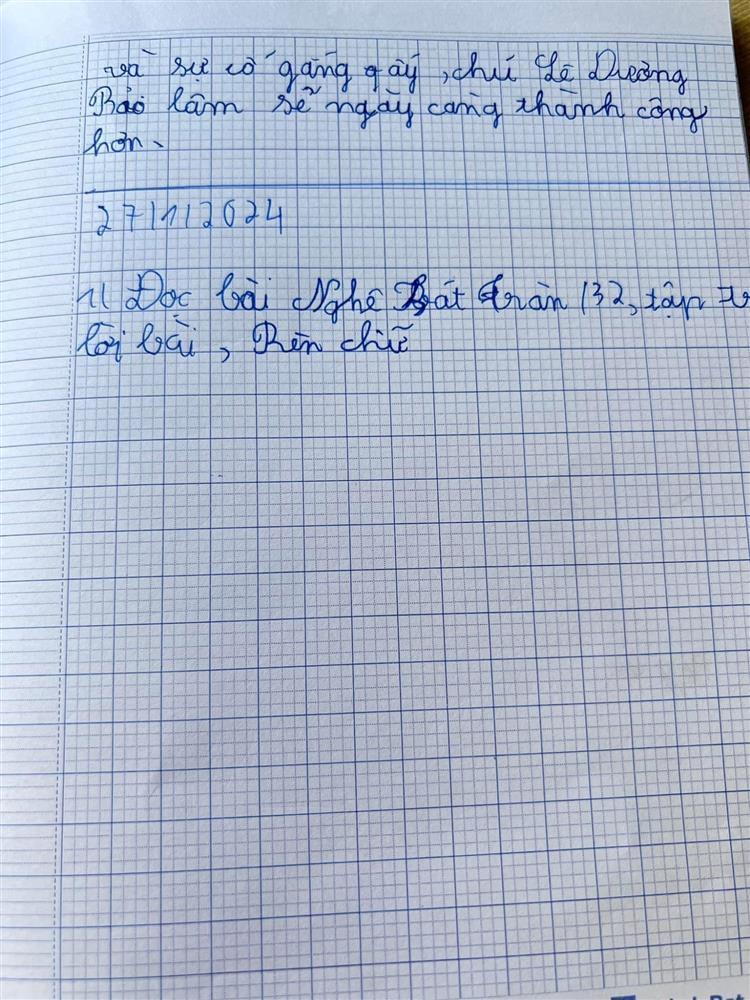 và sự cố gắng gấy, chú Lê Dương
Bảo lâm sẽ ngày càng thành công
hơn.
27/11/2024
1/ Đọc bài Nghề Bát tràn 132, tập tr
lời bài, Rèn chữ